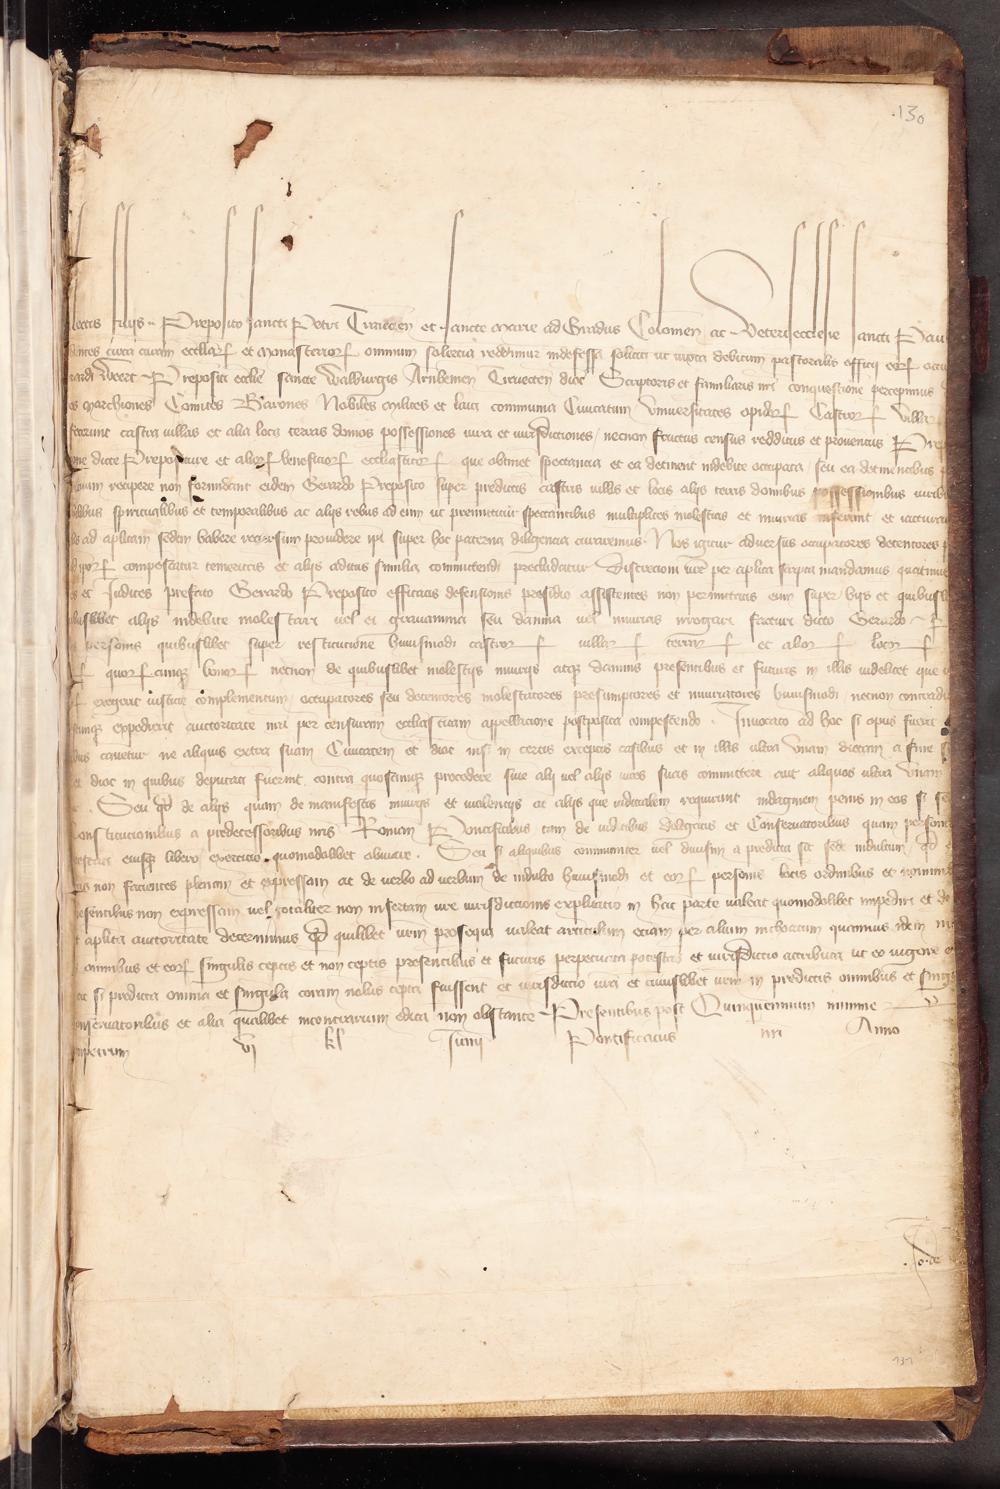 .130
lectis filijs .. Preposito sancti Petri Traiecten et sancte Marie ad Gradus Colonien ac Veteriecclesie sancti Pau
dentes circa curam eccliarꝝ et monasteriorꝝ omnium solercia reddimur indefessa soliciti ut iuxta debitum pastoralis officij eorꝝ occu
rardi Weert Prepositi ecclie sancte Walburgis Arnhemen Traiecten dioc Scriptoris et familiaris nri conquestione percepimus
es Marchiones Comites Barones Nobiles Milites et laici communia Ciuitatum Vniuersitates opidorꝝ Castrorꝝ Villar
fecerunt castra villas et alia loca terras domos possessiones iura et iurisdictiones / necnon fructus census redditus et prouentus Pre
one dicte Prepositure et aliorꝝ beneficiorꝝ ecclesiasticorꝝ que obtinet spectancia et ea detinent indebite occupata / seu ea detinentibus
orum recipere non formidant eidem Gerardo Preposito super predictis castris villis et locis alijs terris domibus possessionibus iurib
bilibus spiritualibus et temporalibus ac alijs rebus ad eum ut premittitur spectantibus multiplices molestias et iniurias inferunt et iacturas
le ad aplicam sedem habere recursum prouidere ipi super hoc paterna diligencia curaremus . Nos igitur aduersus occupatores detentores
iporꝝ compescatur temeritas et alijs aditus similia committendi precludatur Discrecioni vre per aplica scripta mandamus quatinus
es et Iudices prefato Gerardo Preposito efficacis defensionis presidio assistentes non permittatis eum super hijs et quibusli
buslibet alijs indebite molestari vel ei grauamina seu damna vel iniurias irrogari facturi dicto Gerardo
personis quibuslibet super restitucione huiusmodi castrorꝝ villarꝝ terrarꝝ et aliorꝝ locorꝝ
ꝝ quorꝝcunque bonorꝝ necnon de quibuslibet molestijs iniurijs atque damnis presentibus et futuris in illis videlicet que
ꝝ exegerit iusticie complementum occupatores seu detentores molestatores presumptores et iniuriatores huiusmodi necnon contradi
cunque expedierit auctoritate nra per censuram ecclesiasticam appellacione postposita compescendo . Inuocato ad hoc si opus fuerit
bus cauetur ne aliquis extra suam Ciuitatem et dioc nisi in certis exceptis casibus et in illis ultra vnam dietam a fine
et dioc in quibus deputati fuerint contra quoscunque procedere siue alij vel alijs vices suas committere aut aliquos ultra vnam
. Seu quod de alijs quam de manifestis iniurijs et violencijs ac alijs que iudicialem requirunt indaginem penis in eos si se
onstitucionibus a predecessoribus nris Roman Pontificibus tam de iudicibus delegatis et Conseruatoribus quam personis
testati eiusque libero exercicio quomodolibet obuiare . Seu si aliquibus communiter vel diuisim a predicta sit sede indultum
as non facientes plenam et expressam ac de verbo ad verbum de indulto huiusmodi et eorꝝ personis locis ordinibus et nominib
esentibus non expressam vel totaliter non insertam vre iurisdictionis explicatio in hac parte valeat quomodolibet impediri et de
t aplica auctoritate decernimus quod quilibet vrm prosequi valeat articulum eciam per alium inchoatum quamuis idem in
omnibus et eorꝝ singulis ceptis et non ceptis presentibus et futuris perpetuata potestas et iurisdictio attributa ut eo vigore
ac si predicta omnia et singula coram nobis cepta fuissent et iurisdictio vra et cuiuslibet vrm in predictis omnibus et singu
onseruatoribus et alia qualibet incontrarium edita non obstante . Presentibus post Quinquennium minime v
mpetrum vi kl Iunij Pontificatus nri Anno
. Jo . de
131